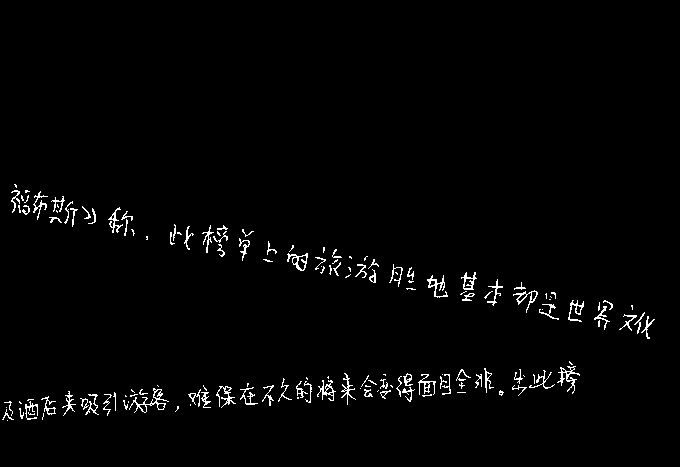 福布斯》称,此榜单上的旅游胜地基本却是世界文化
及酒后来吸引游客,难保在不久的将来会变得面目全非。出此榜